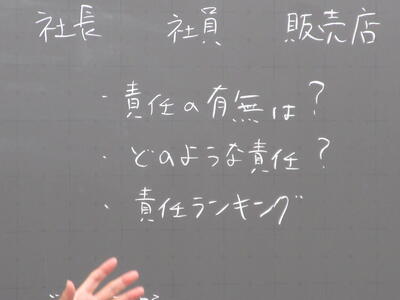 社長 社員 販売店
・責任の有無は?
・どのような責任?
・責任ランキング